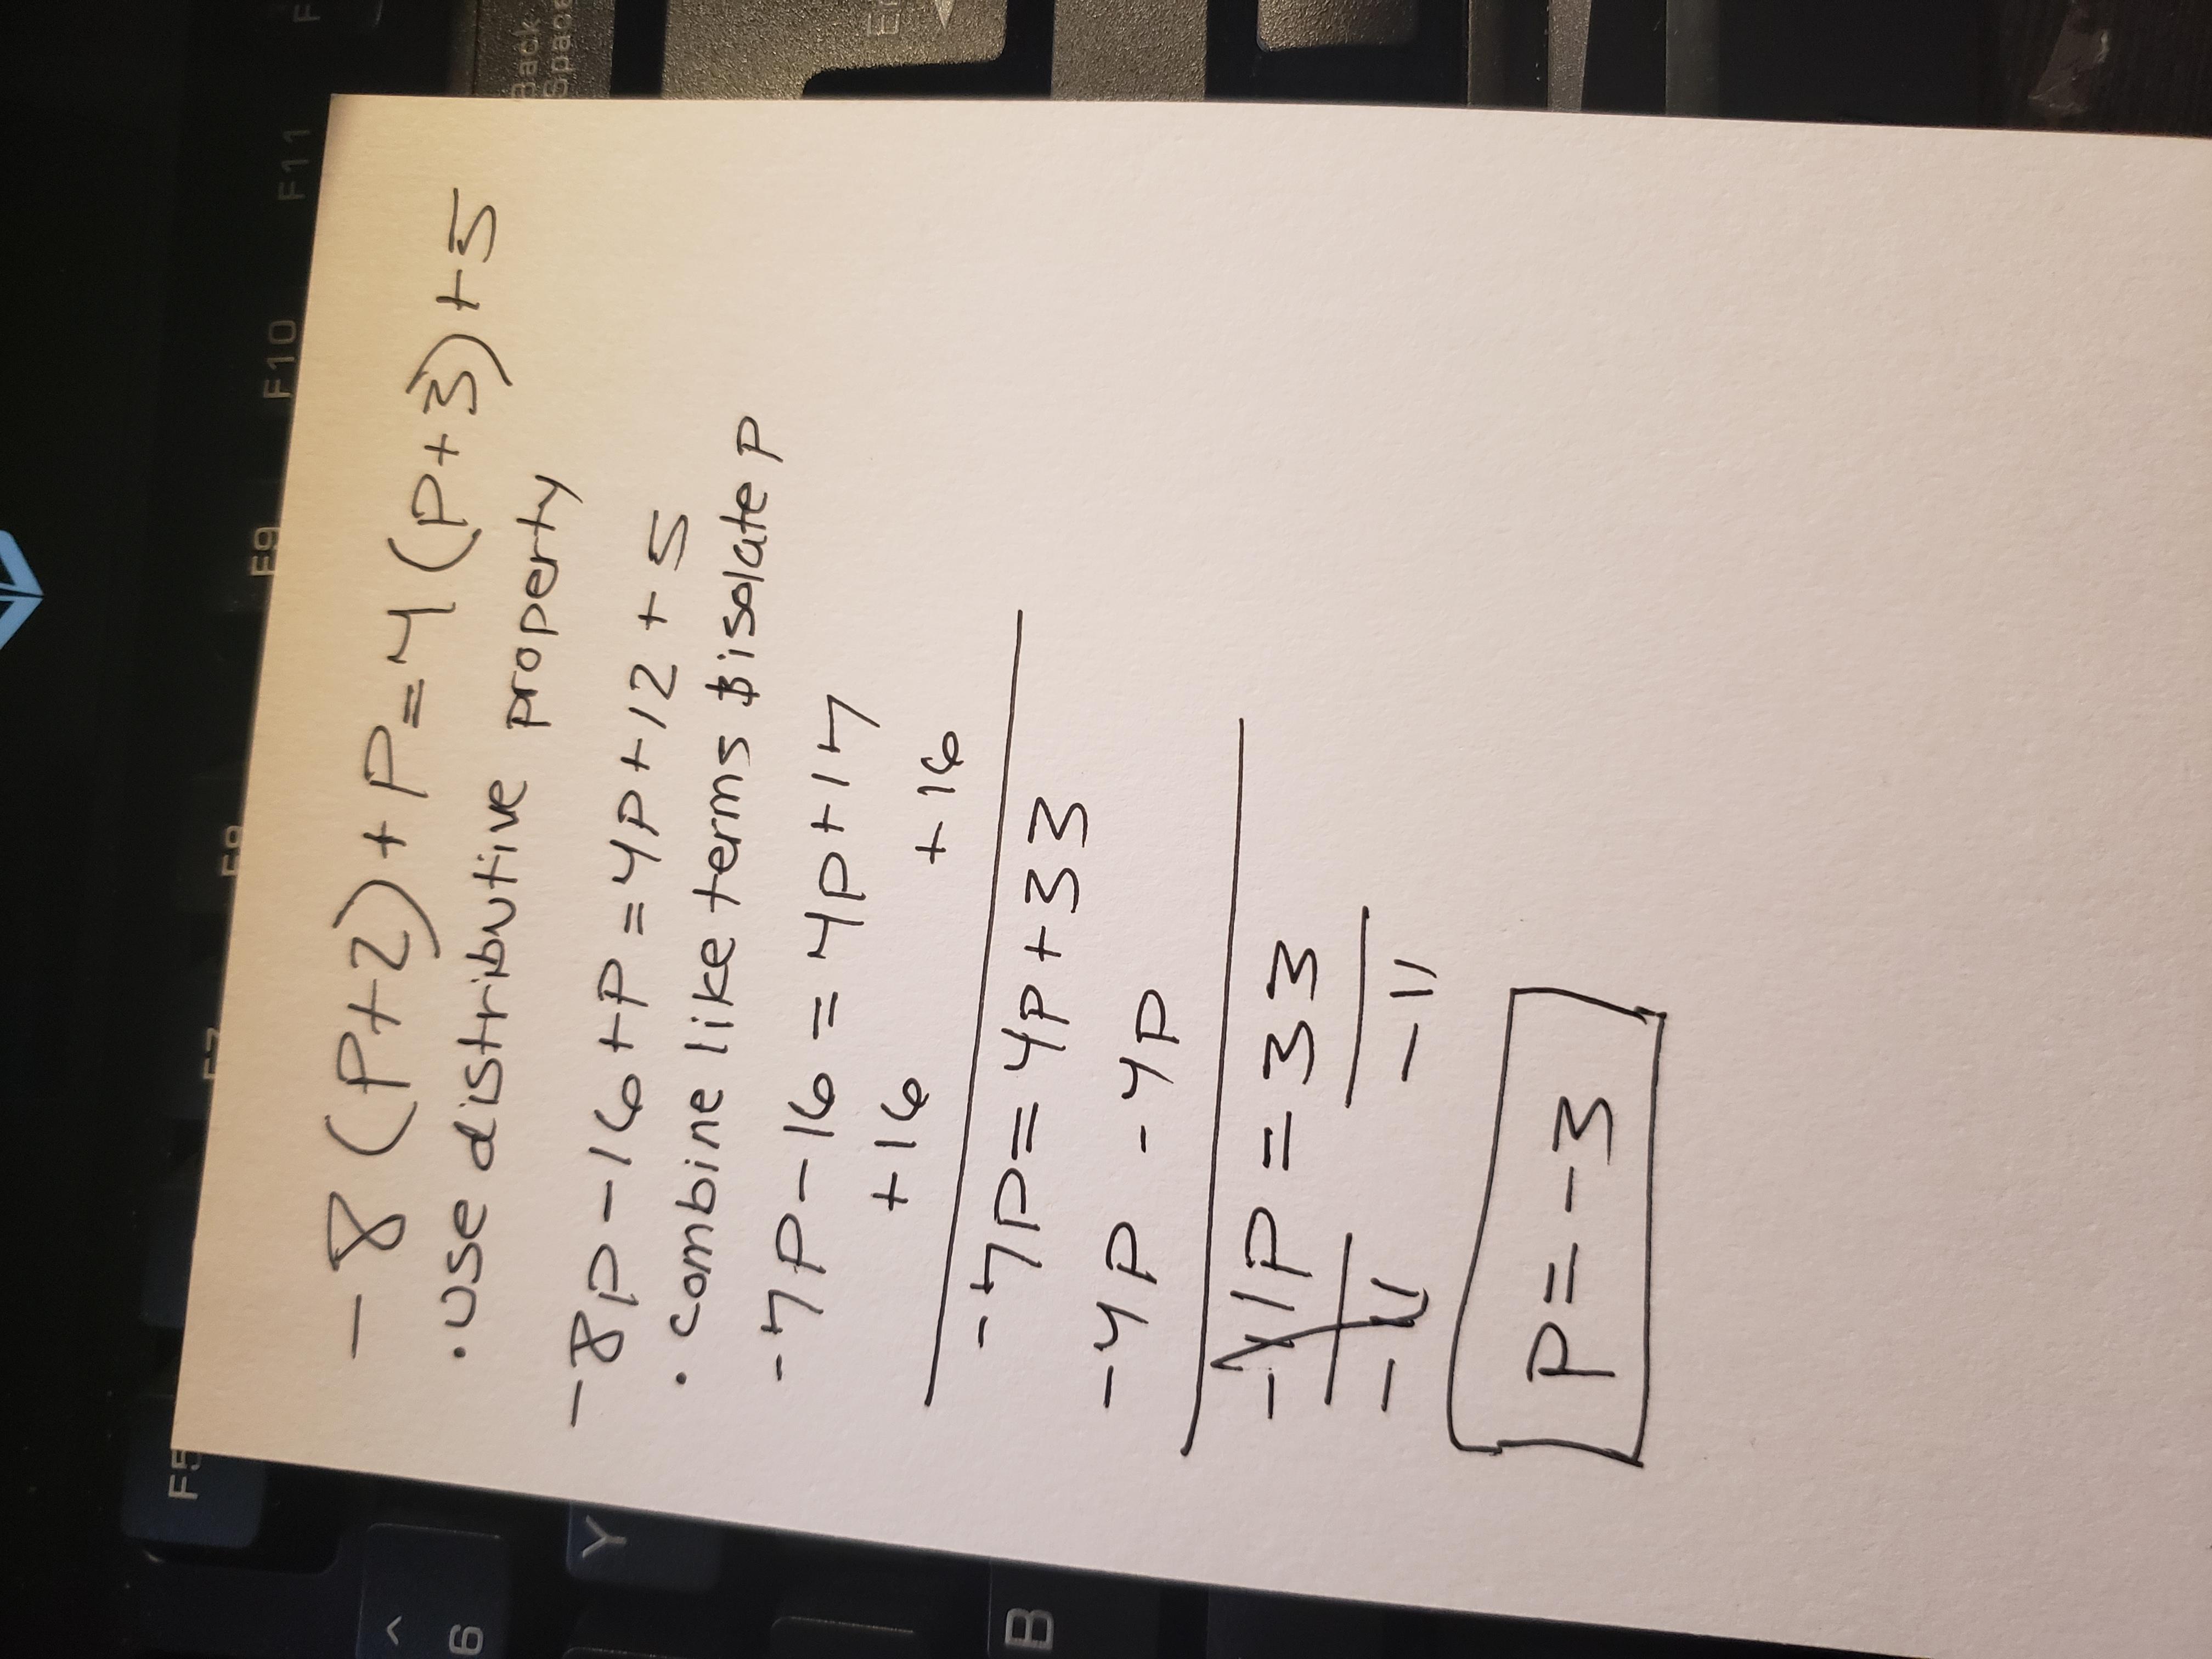 -8(P+2)+P=4(P+3)+5
•use distributive property
-8P-16+P=4P+12+5
•combine like terms & isolate P
-7P-16=4P+17
+16 +16
-7P=4P+33
-4P -4P
-11P=33
-11 -11
P=-3
F5
F9
F10
F11
Back
Space
^
6
Y
B